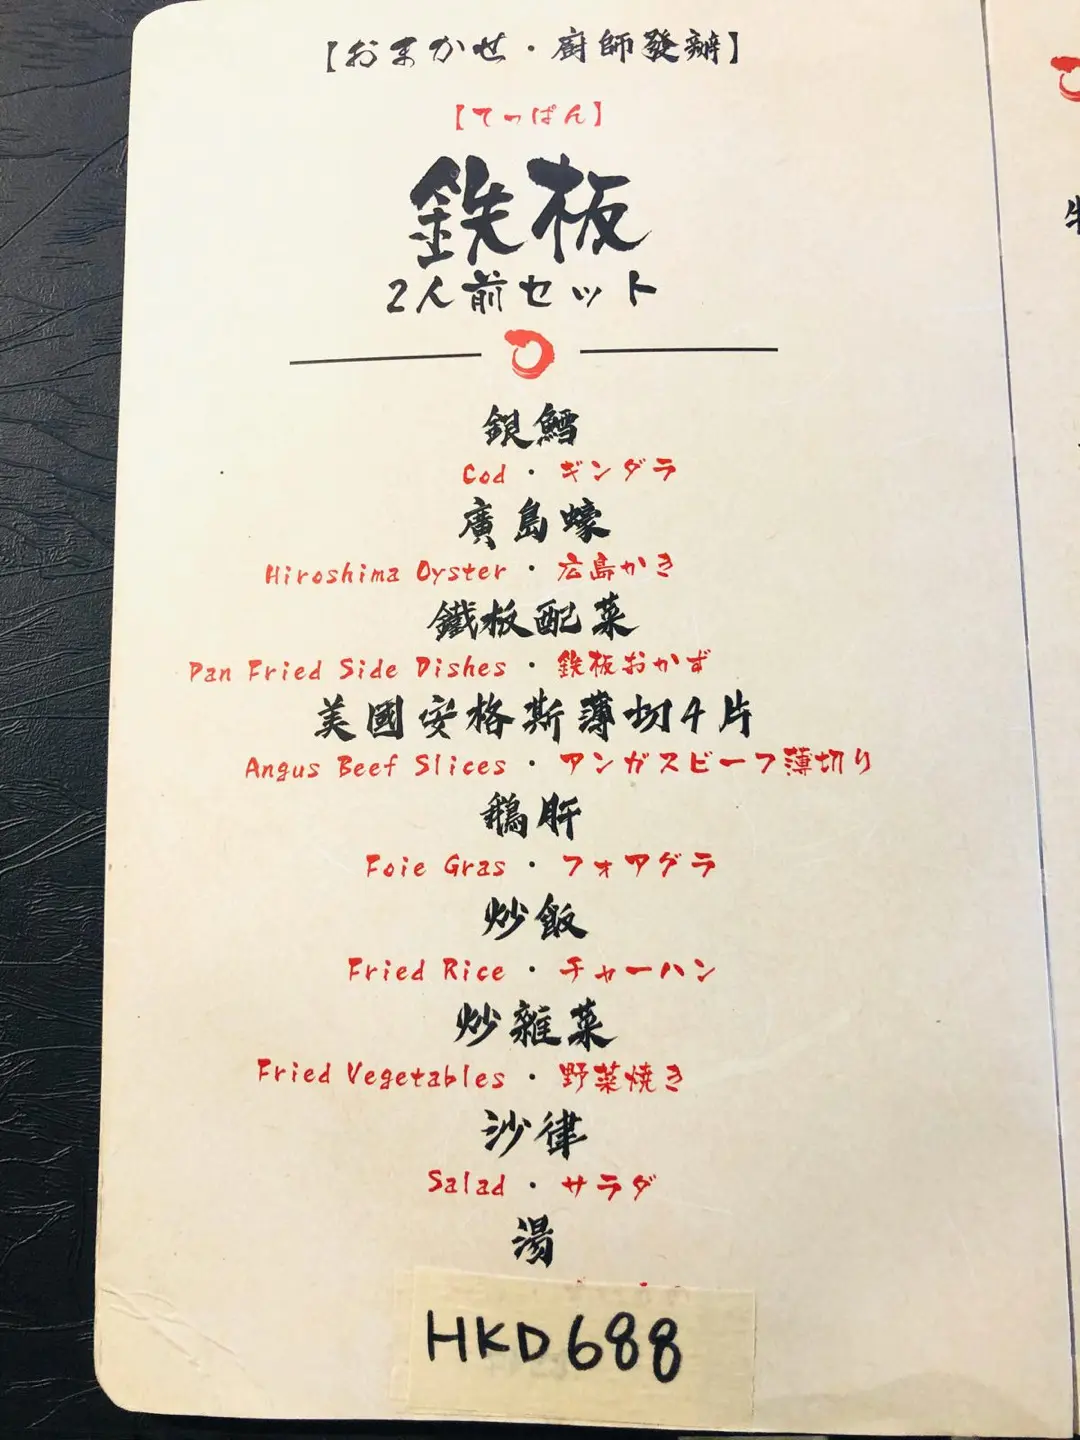 【おまかせ・廚師發辦】
【てっぱん】
鉄板
2人前セット
銀鱈
Cod・ギンダラ
廣島蠔
Hiroshima Oyster・広島かき
鐵板配菜
Pan Fried Side Dishes・鉄板おかず
美國安格斯薄切4片
Angus Beef Slices・アンガスビーフ薄切り
鵝肝
Foie Gras・フォアグラ
炒飯
Fried Rice・チャーハン
炒雜菜
Fried Vegetables・野菜焼き
沙律
Salad・サラダ
湯
HKD688